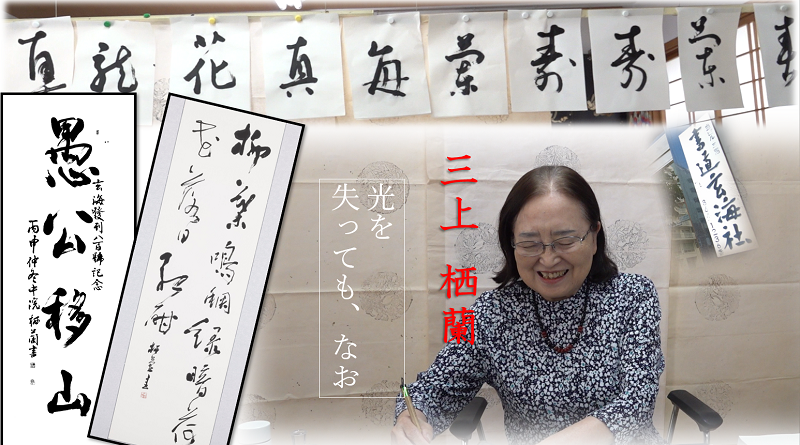 龍
花
真
毎
蘭
寿
寿
蘭
愚公移山
玄海發刊八百號記念
丙申仲冬中浣 栖蘭書
柳葉鳴蜩緑暗荷
花落日紅酣 栖蘭書
光を
失っても、なお
三上 栖蘭
書道玄海社